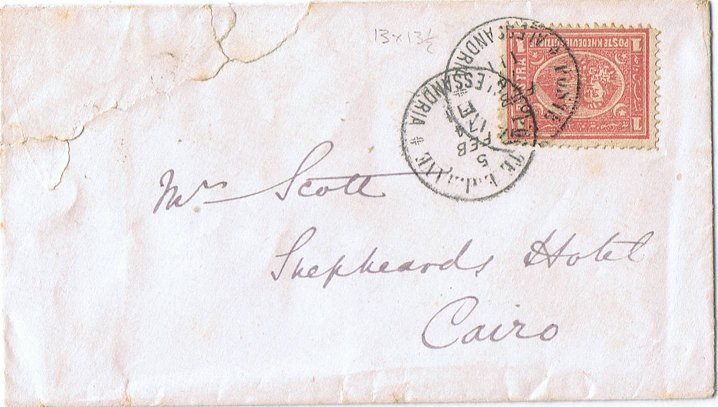 13 x 13½
POSTE KHEDEUIE EGIZIANE
1
1
POSTE E...IANE
ALESSANDRIA
5
FEB
74
Mrs Scott
Shepheards Hotel
Cairo